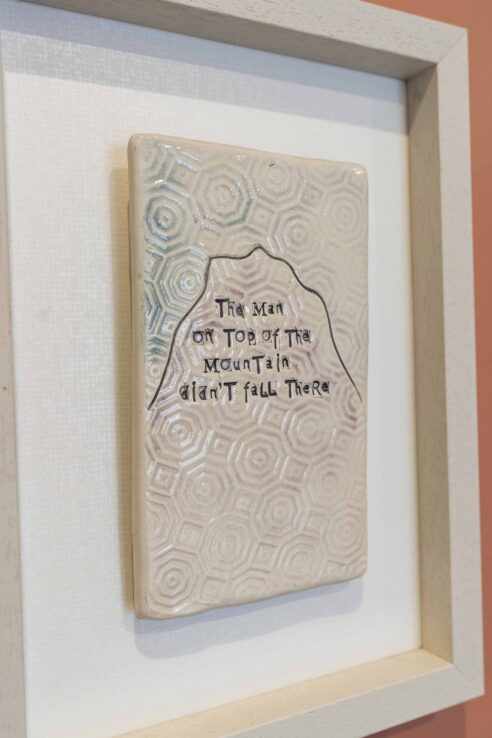 The Man
on Top of The
MounTain
didn'T faLL TheRe